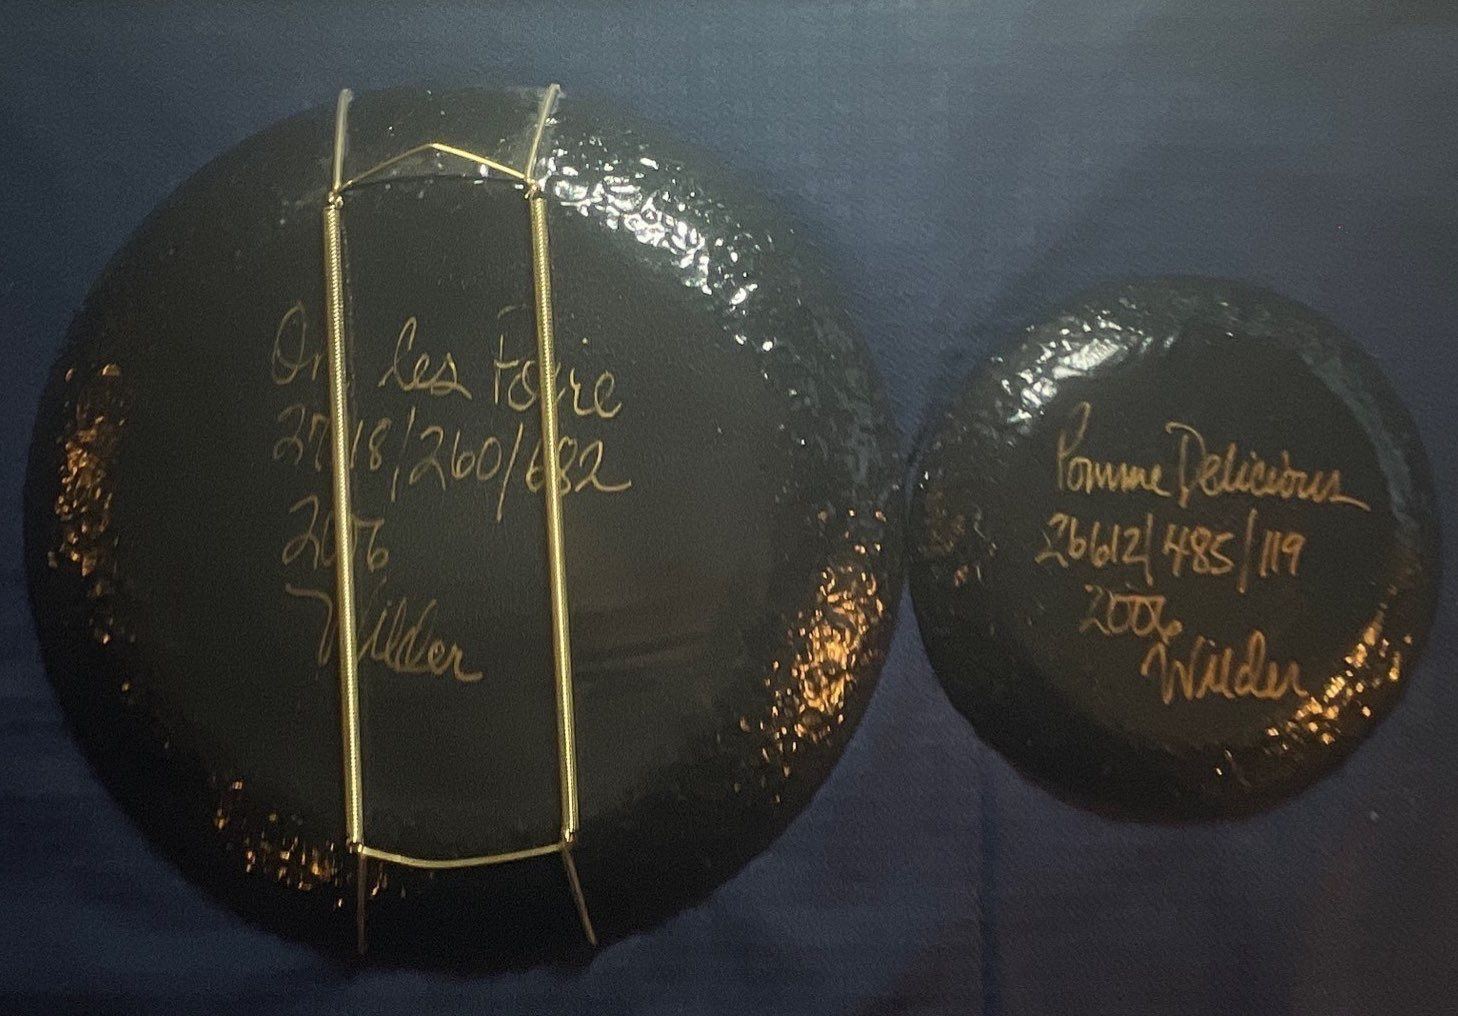 les
/260/682
2006
Wilder
Pomme Delicious
26612/485/119
2006
Wilder